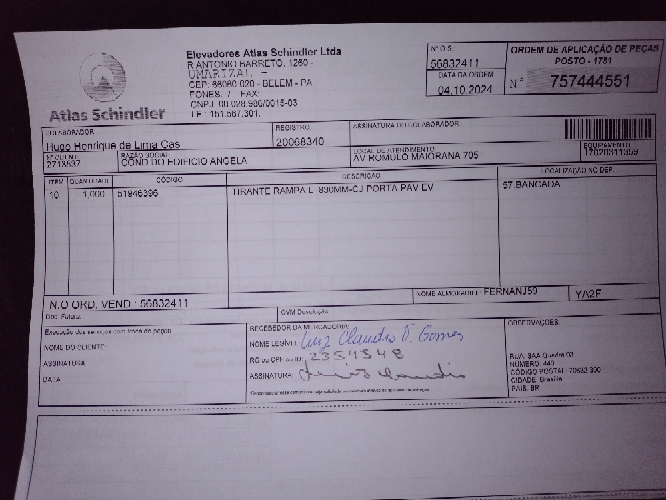 Elevadores Atlas Schindler Ltda
R ANTONIO BARRETO, 1260 -
UMARIZAL -
CEP: 66060 020 - BELEM - PA
FONES: / FAX:
CNPJ: 00.028.986/0015-03
I.E.: 151.567.301.
Atlas Schindler
Nº O.S.:
56832411
DATA DA ORDEM
04.10.2024
ORDEM DE APLICAÇÃO DE PEÇAS
POSTO - 1781
Nº 757444551
COLABORADOR
Hugo Henrique de Lima Gas
REGISTRO
20068340
ASSINATURA DO COLABORADOR
Nº CLIENT
2713537
RAZÃO SOCIAL
COND DO EDIFICIO ANGELA
LOCAL DE ATENDIMENTO
AV ROMULO MAIORANA 705
EQUIPAMENTO
ITEM QUANTIDADE CÓDIGO DESCRIÇÃO LOCALIZAÇÃO NO DEP.
10 1,000 51946396 TIRANTE RAMPA L 830MM-CJ PORTA PAV EV 57.BANCADA
N.O ORD. VEND : 56832411
NOME ALMOXARIFE: FERNANJ59 YA2F
Doc. Fatura:
GVM Devolução
Execução dos serviços com troca de peças
NOME DO CLIENTE:
ASSINATURA:
DATA
RECEBEDOR DA MERCADORIA:
NOME LEGÍVEL: Luiz Claudio O. Gomes
RG ou CPF ou ID: 2354548
ASSINATURA: Luiz Claudio
OBSERVAÇÕES:
RUA: SAA Quadra 03
NÚMERO: 440
CÓDIGO POSTAL: 70632 300
CIDADE: Brasília
PAÍS: BR